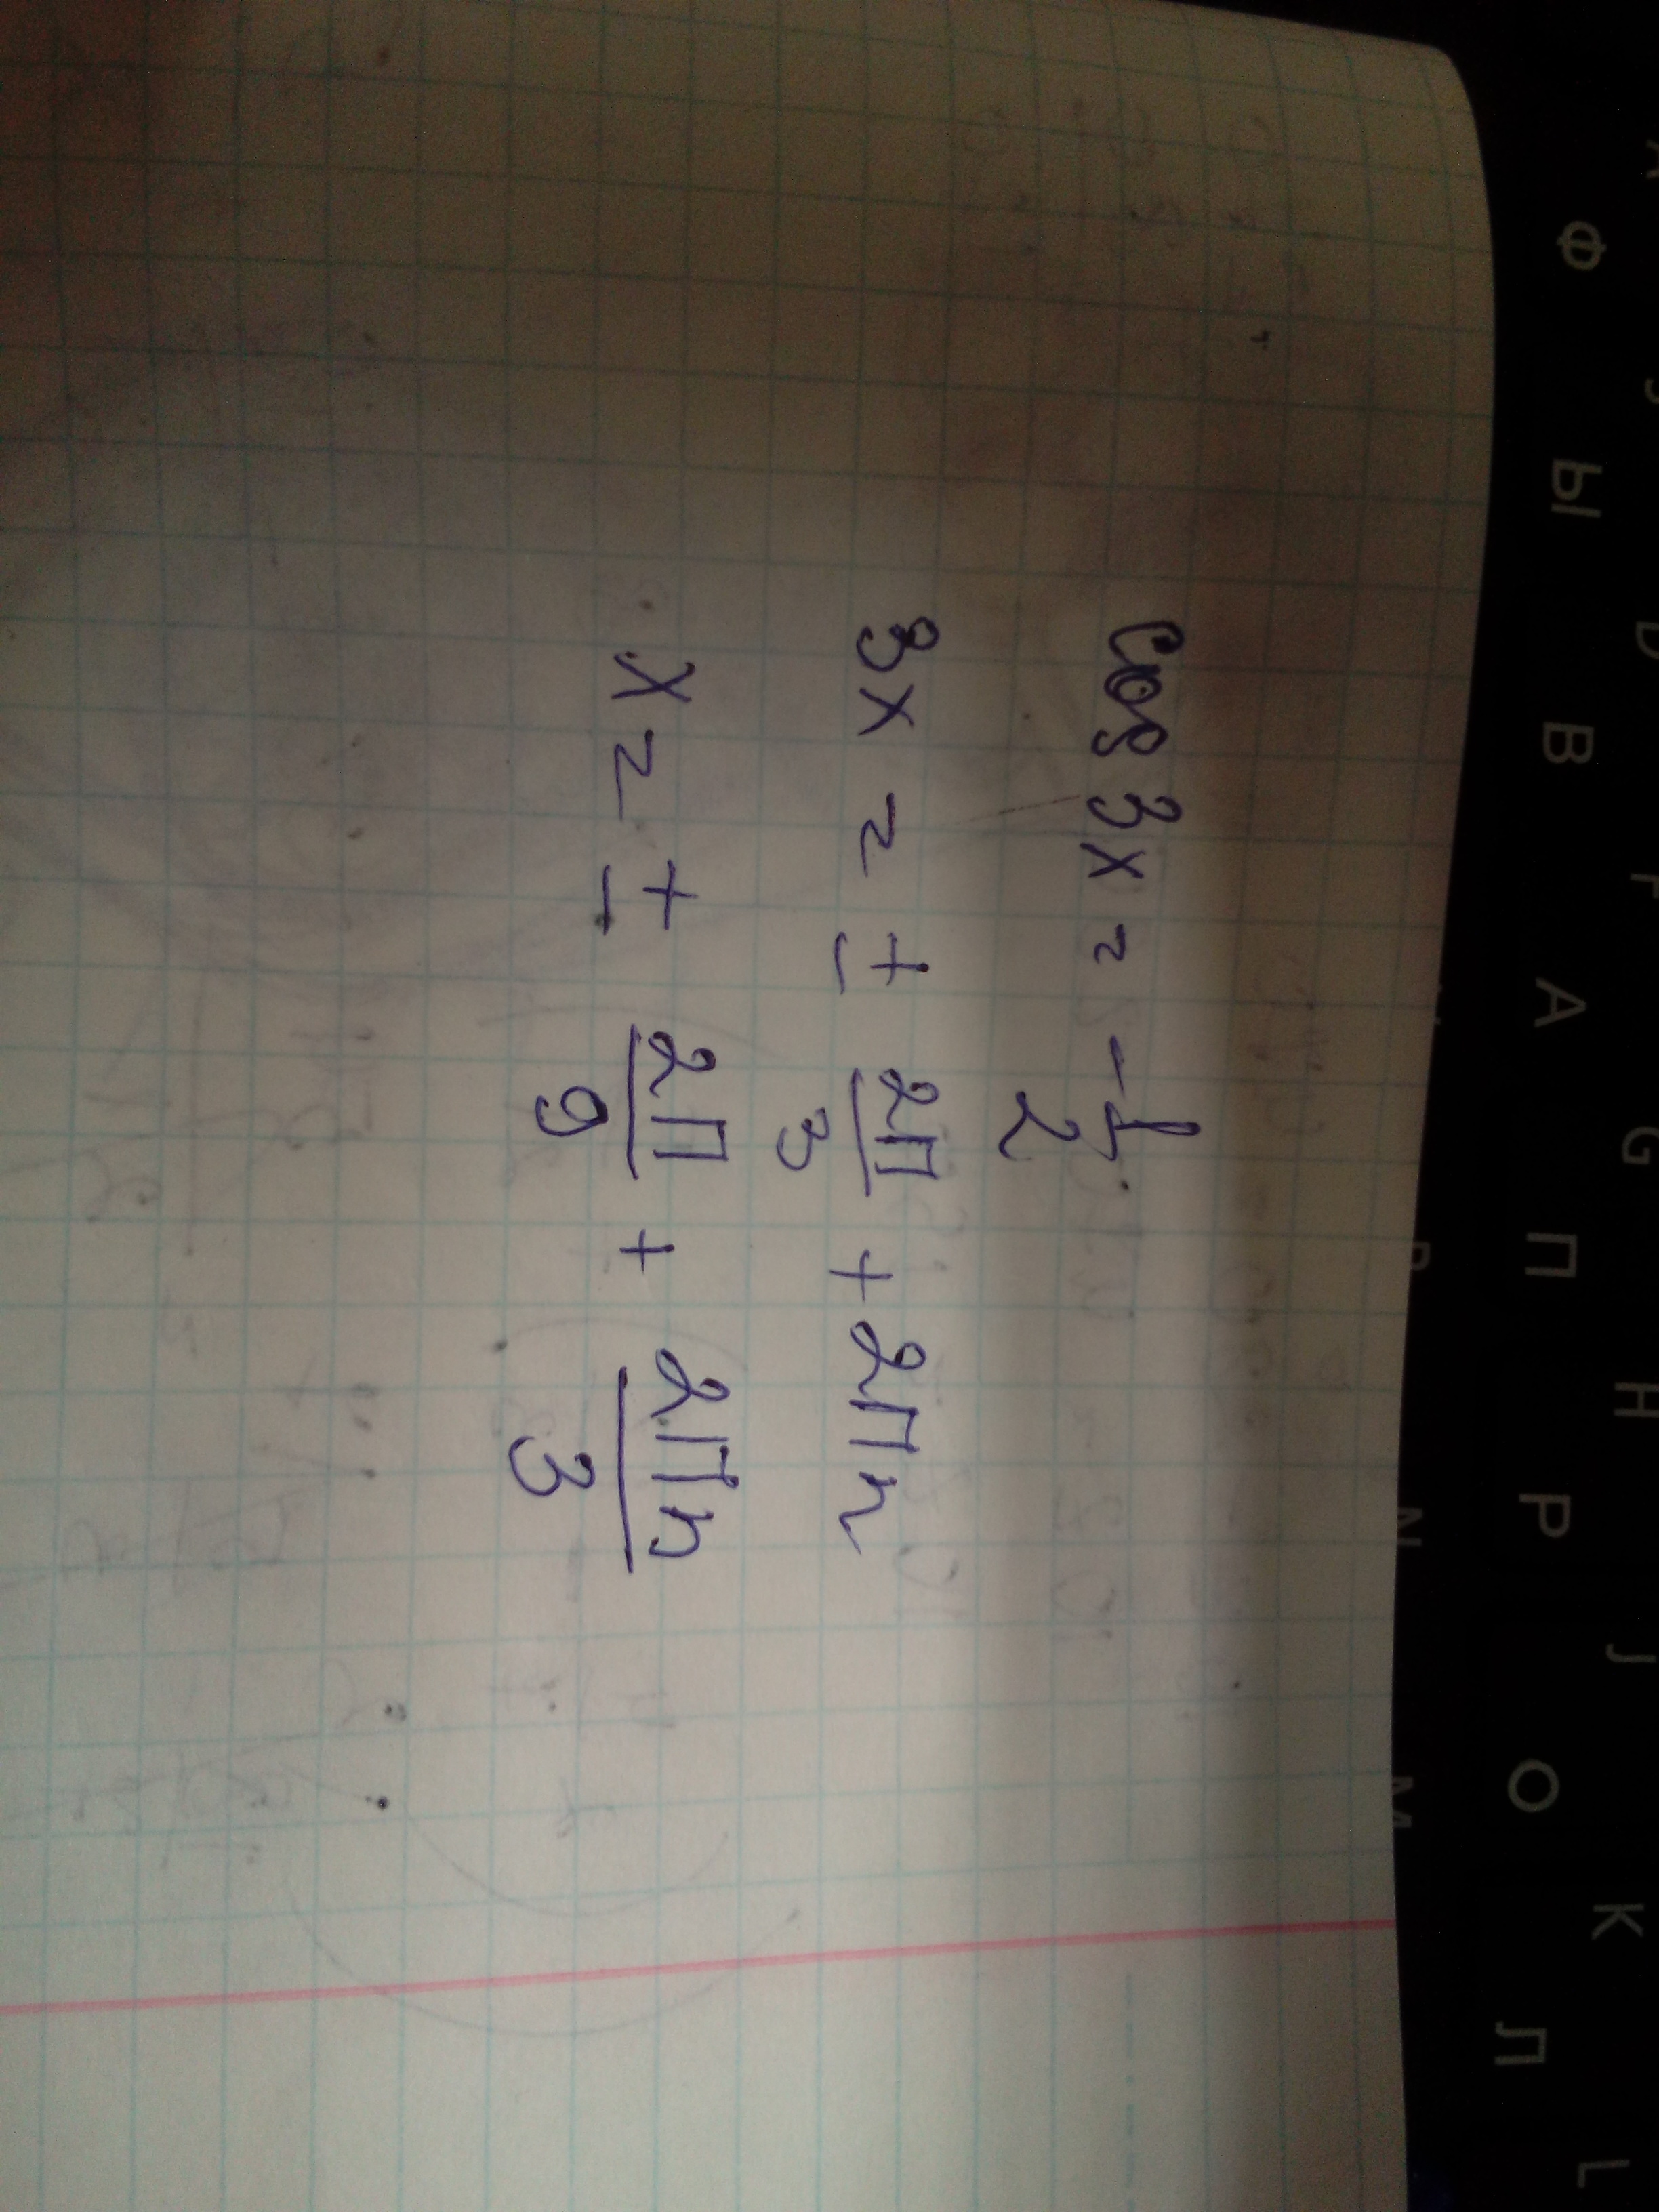 cos 3x = -1/2
3x = ± 2П/3 + 2Пn
x = ± 2П/9 + 2Пn/3
Ф Ы В А П Р О Л
D F G H J K L
N M